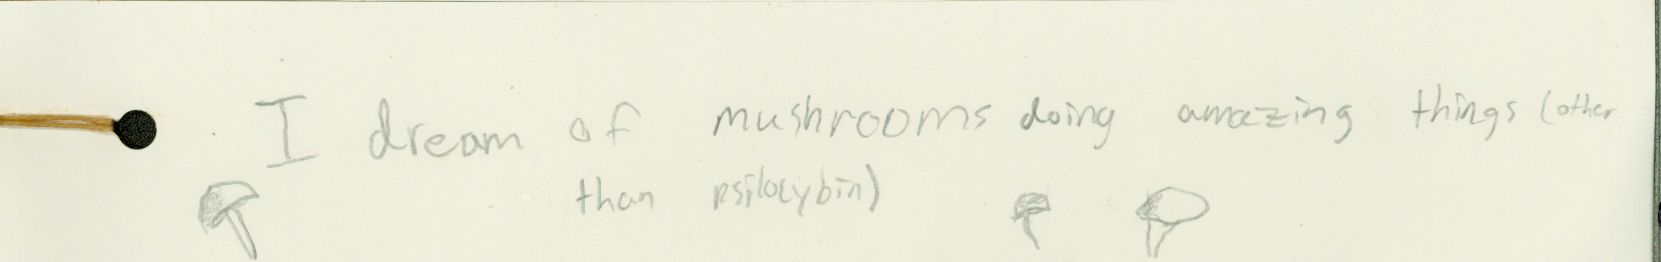 I dream of mushrooms doing amazing things (other
than psilocybin)